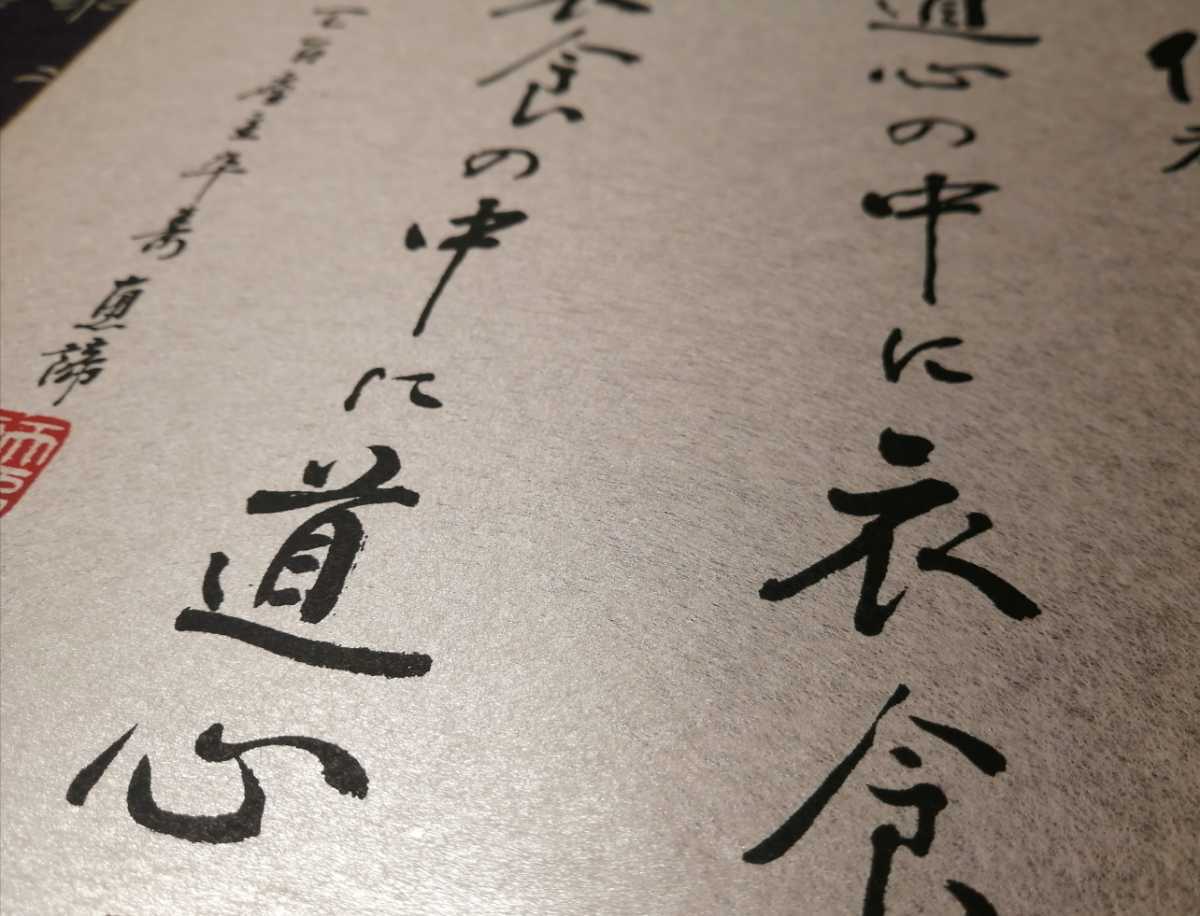 道心の中に衣食
衣食の中に道心
寿 恵諦